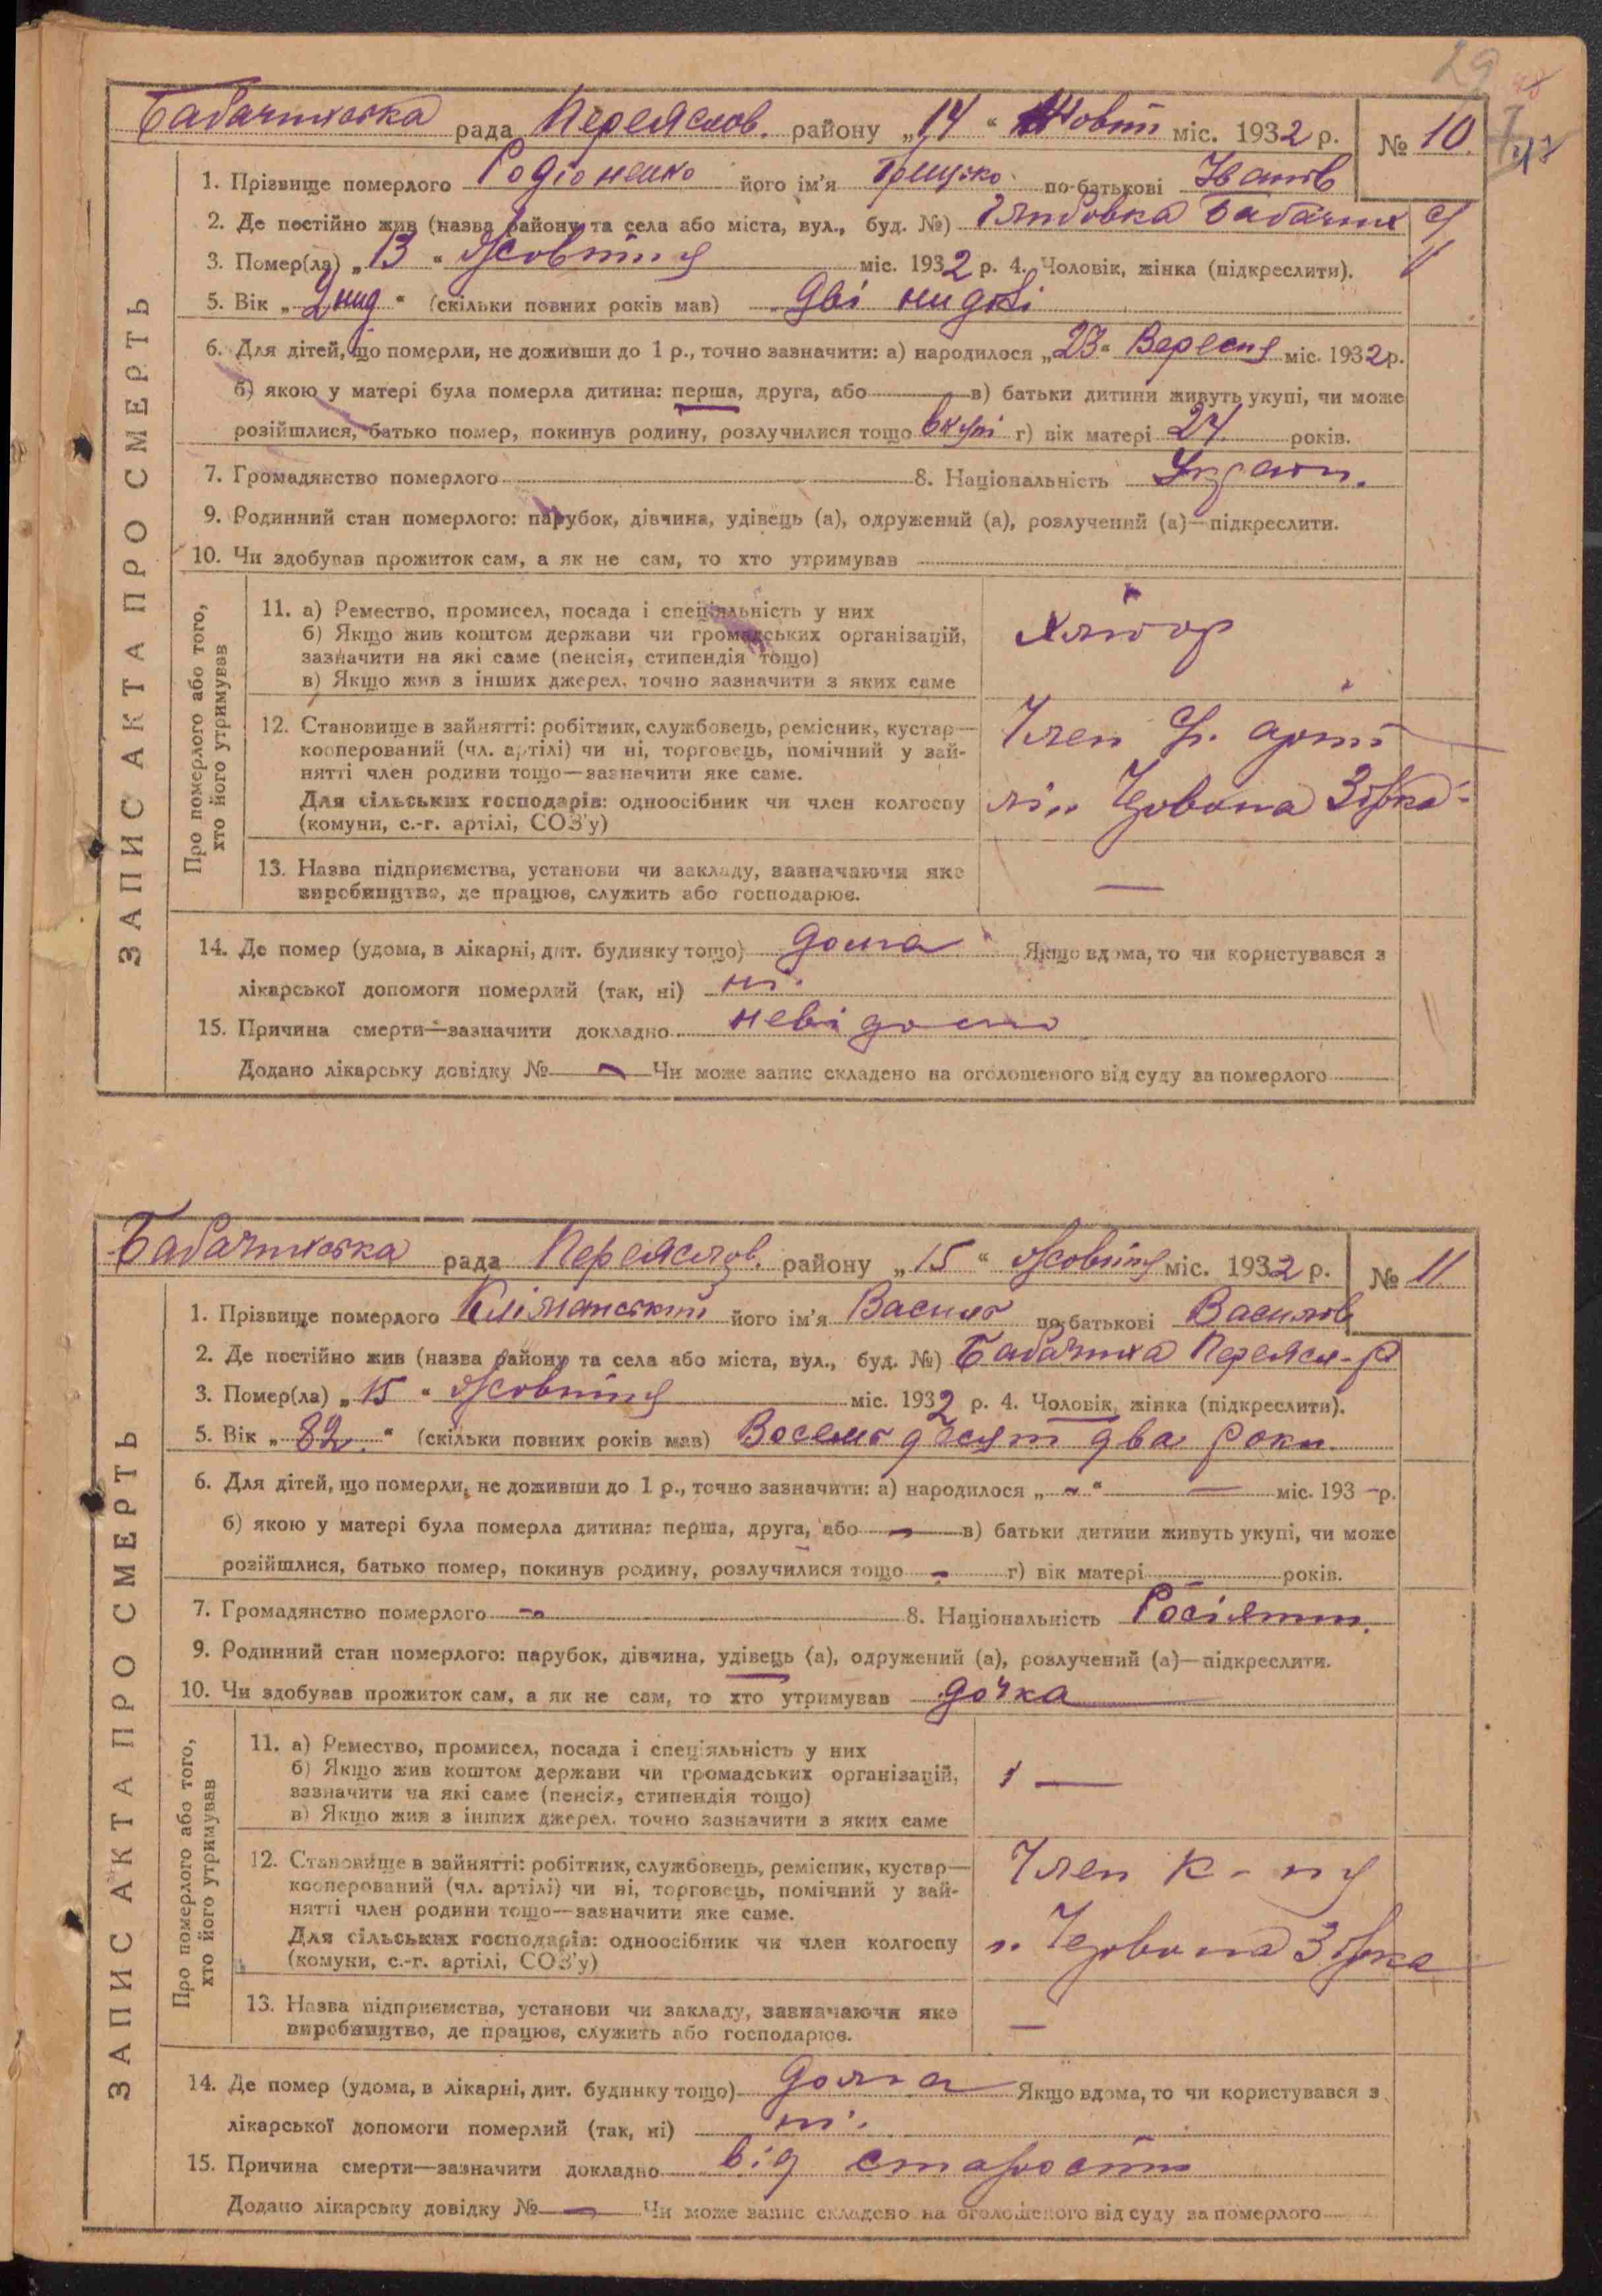 29
Бабачихська рада Переяслов. району „14“ Жовтн міс. 1932 р. № 10.
1. Прізвище померлого Родіоненко його ім'я Грицько по-батькові Іванов
2. Де постійно жив (назва району та села або міста, вул., буд. №) Бабачих
3. Помер(ла) „13“ Жовтня міс. 1932 р. 4. Чоловік, жінка (підкреслити).
5. Вік „2 нид“ (скільки повних років мав) Дві нидлі
6. Для дітей, що померли, не доживши до 1 р., точно зазначити: а) народилося „23“ Вересня міс. 1932 р.
б) якою у матері була померла дитина: перша, друга, або в) батьки дитини живуть укупі, чи може
розійшлися, батько помер, покинув родину, розлучилися тощо вкупі г) вік матері 24 років.
7. Громадянство померлого 8. Національність Украин.
9. Родинний стан померлого: парубок, дівчина, удівець (а), одружений (а), розлучений (а)—підкреслити.
10. Чи здобував прожиток сам, а як не сам, то хто утримував
ЗАПИС АКТА ПРО СМЕРТЬ
Про померлого або того,
хто його утримував
11. а) Ремество, промисел, посада і спеціяльність у них
б) Якщо жив коштом держави чи громадських організацій,
зазначити на які саме (пенсія, стипендія тощо)
в) Якщо жив з інших джерел, точно зазначити з яких саме
Хлібор
12. Становище в зайнятті: робітник, службовець, ремісник, кустар—
кооперований (чл. артілі) чи ні, торговець, помічний у зай-
нятті член родини тощо—зазначити яке саме.
Для сільських господарів: одноосібник чи член колгоспу
(комуни, с.-г. артілі, СОЗ'у)
Член арті
лі Червона Зірка
13. Назва підприємства, установи чи закладу, зазначаючи яке
виробництво, де працює, служить або господарює.
—
14. Де помер (удома, в лікарні, дит. будинку тощо) дома Якщо вдома, то чи користувався з
лікарської допомоги померлий (так, ні) ні.
15. Причина смерти—зазначити докладно невідомо
Додано лікарську довідку № — Чи може запис складено на оголошеного від суду за померлого
Бабачихська рада Переяслов. району „15“ Жовтня міс. 1932 р. № 11
1. Прізвище померлого його ім'я Василь по-батькові Васильов
2. Де постійно жив (назва району та села або міста, вул., буд. №) Бабачиха Переясл-р
3. Помер(ла) „15“ Жовтня міс. 1932 р. 4. Чоловік, жінка (підкреслити).
5. Вік „82“ (скільки повних років мав) Восемь десят два роки.
6. Для дітей, що померли, не доживши до 1 р., точно зазначити: а) народилося „—“ — міс. 193 – р.
б) якою у матері була померла дитина: перша, друга, або — в) батьки дитини живуть укупі, чи може
розійшлися, батько помер, покинув родину, розлучилися тощо – г) вік матері років.
7. Громадянство померлого – 8. Національність Росіянин.
9. Родинний стан померлого: парубок, дівчина, удівець (а), одружений (а), розлучений (а)—підкреслити.
10. Чи здобував прожиток сам, а як не сам, то хто утримував дочка
ЗАПИС АКТА ПРО СМЕРТЬ
Про померлого або того,
хто його утримував
11. а) Ремество, промисел, посада і спеціяльність у них
б) Якщо жив коштом держави чи громадських організацій,
зазначити на які саме (пенсія, стипендія тощо)
в) Якщо жив з інших джерел, точно зазначити з яких саме
—
12. Становище в зайнятті: робітник, службовець, ремісник, кустар—
кооперований (чл. артілі) чи ні, торговець, помічний у зай-
нятті член родини тощо—зазначити яке саме.
Для сільських господарів: одноосібник чи член колгоспу
(комуни, с.-г. артілі, СОЗ'у)
Член к-пу
Червона Зірка
13. Назва підприємства, установи чи закладу, зазначаючи яке
виробництво, де працює, служить або господарює.
—
14. Де помер (удома, в лікарні, дит. будинку тощо) дома Якщо вдома, то чи користувався з
лікарської допомоги померлий (так, ні) ні.
15. Причина смерти—зазначити докладно від старости
Додано лікарську довідку № — Чи може запис складено на оголошеного від суду за померлого